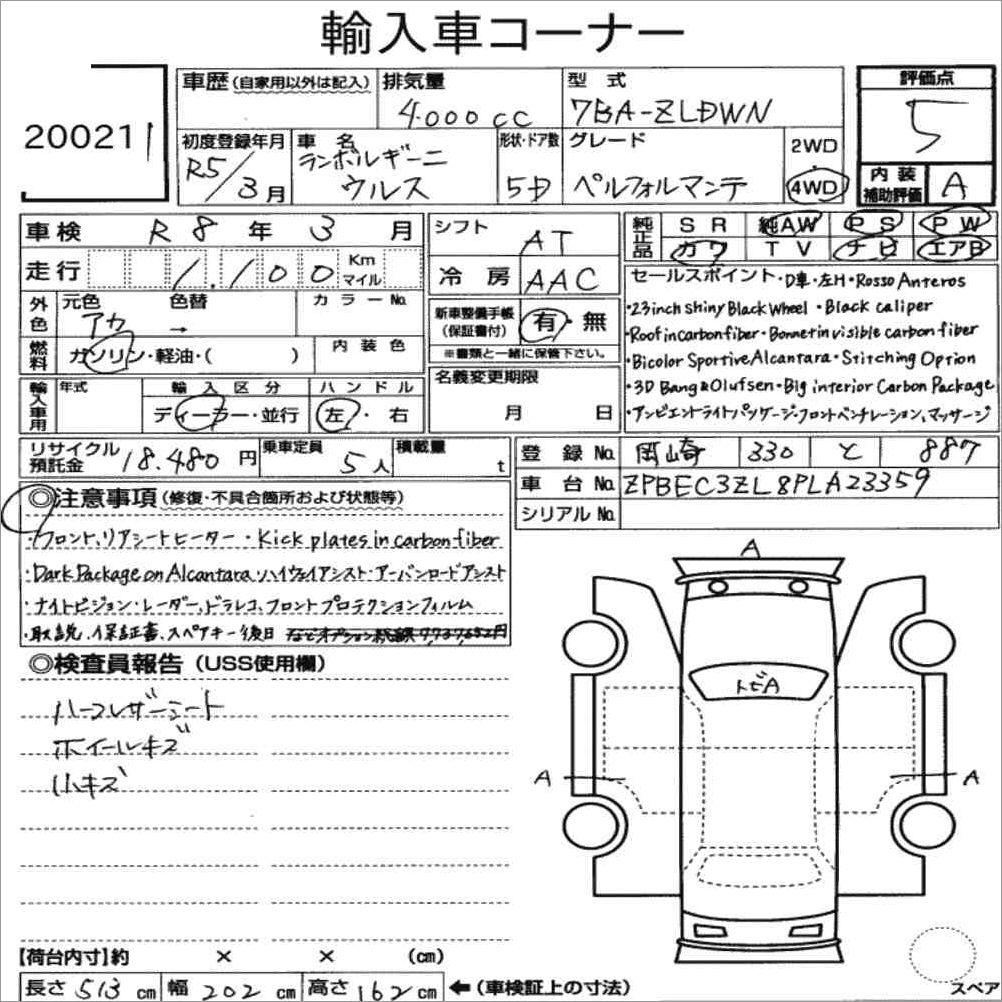 輸入車コーナー
20021
車歴(自家用以外は記入)
排気量
4.000cc
型式
7BA-ZLDWN
評価点
5
初度登録年月
R5/3月
車名
ランボルギーニ
ウルス
形状・ドア数
5D
グレード
ペルフォルマンテ
2WD
・
4WD
内装
補助評価
A
車検 R8年3月
走行 1.100 Km マイル
シフト AT
冷房 AAC
純正品 SR 純AW PS PW
カワ TV ナビ エアB
外色 元色 アカ 色替 → カラーNo.
燃料 ガソリン・軽油・( ) 内装色
新車整備手帳
(保証書付)
有・無
※書類と一緒に保管下さい。
セールスポイント・D車・左H・Rosso Anteros
・23inch Shiny Black Wheel ・Black caliper
・Roof in carbon fiber・Bonnet in visible carbon fiber
・Bicolor Sportive Alcantara・Stitching Option
・3D Bang & Olufsen・Big interior Carbon Package
・アンビエントライトパッケージ・フロントベンチレーション、マッサージ
輸入車用 年式 輸入区分 ハンドル
ディーラー・並行 左・右
名義変更期限
月 日
リサイクル
預託金
18.480円
乗車定員
5人
積載量
t
登録No. 岡崎 330 と 887
車台No. ZPBEC3ZL8PLA23359
シリアルNo.
◎注意事項(修復・不具合箇所および状態等)
・フロント、リアシートヒーター・Kick plates in carbon fiber
・Dark Package on Alcantara・ハイウェイアシスト・アーバンロードアシスト
・ナイトビジョン・レーダー、ドラレコ、フロントプロテクションフィルム
・取説、保証書、スペアキー後日
◎検査員報告(USS使用欄)
ハーフレザーシート
ホイールキズ
小キズ
A
トビA
A
A
【荷台内寸】約 × × (cm)
長さ513cm 幅202cm 高さ162cm ←(車検証上の寸法)
スペア